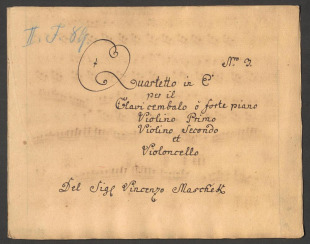 II. F. 84.
Nro 2
Quartetto in C
per il
Clavicembalo ò forte piano
Violino Primo
Violino Secondo
et
Violoncello
Del Sigl Vincenzo Maschek